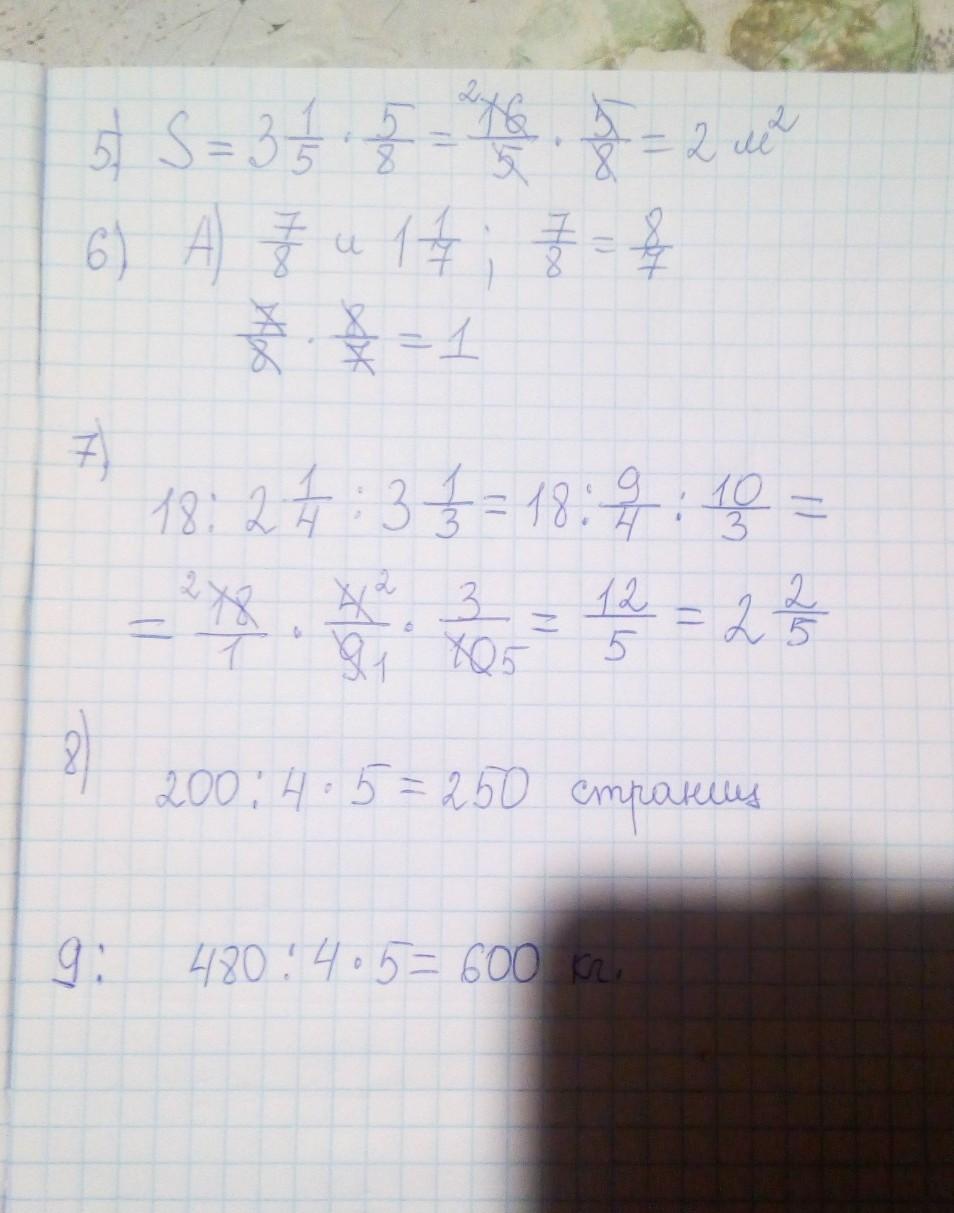 5) S = 3 1/5 · 5/8 = 16/5 2 · 5/8 = 2 м²
6) А) 7/8 и 1 1/7 ; 7/8 = 8/7
7/8 · 8/7 = 1
7)
18 : 2 1/4 : 3 1/3 = 18 : 9/4 : 10/3 =
= 2 18/1 · 4 2/9 1 · 3/10 5 = 12/5 = 2 2/5
8) 200 : 4 · 5 = 250 страниц
9: 480 : 4 · 5 = 600 кг.